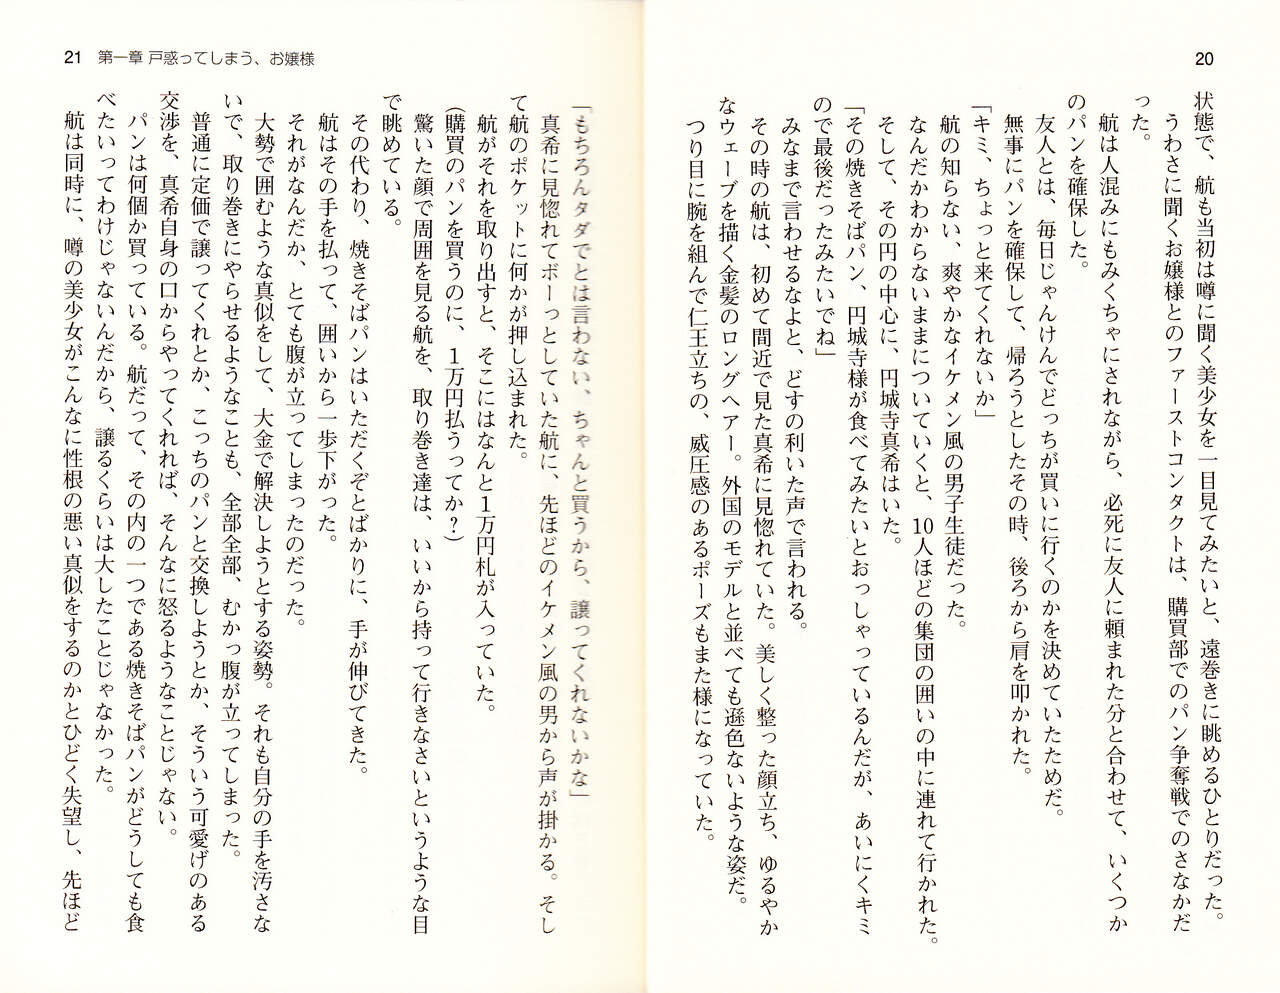 20
状態で、航も当初は噂に聞く美少女を一目見てみたいと、遠巻きに眺めるひとりだった。
うわさに聞くお嬢様とのファーストコンタクトは、購買部でのパン争奪戦でのさなかだ
った。
航は人混みにもみくちゃにされながら、必死に友人に頼まれた分と合わせて、いくつか
のパンを確保した。
友人とは、毎日じゃんけんでどっちが買いに行くのかを決めていたためだ。
無事にパンを確保して、帰ろうとしたその時、後ろから肩を叩かれた。
「キミ、ちょっと来てくれないか」
航の知らない、爽やかなイケメン風の男子生徒だった。
なんだかわからないままについていくと、10人ほどの集団の囲いの中に連れて行かれた。
そして、その円の中心に、円城寺真希はいた。
「その焼きそばパン、円城寺様が食べてみたいとおっしゃっているんだが、あいにくキミ
ので最後だったみたいでね」
みなまで言わせるなよと、どすの利いた声で言われる。
その時の航は、初めて間近で見た真希に見惚れていた。美しく整った顔立ち、ゆるやか
なウェーブを描く金髪のロングヘアー。外国のモデルと並べても遜色ないような姿だ。
つり目に腕を組んで仁王立ちの、威圧感のあるポーズもまた様になっていた。
21 第一章 戸惑ってしまう、お嬢様
「もちろんタダでとは言わない、ちゃんと買うから、譲ってくれないかな」
真希に見惚れてボーっとしていた航に、先ほどのイケメン風の男から声が掛かる。そし
て航のポケットに何かが押し込まれた。
航がそれを取り出すと、そこにはなんと1万円札が入っていた。
（購買のパンを買うのに、1万円払うってか？）
驚いた顔で周囲を見る航を、取り巻き達は、いいから持って行きなさいというような目
で眺めている。
その代わり、焼きそばパンはいただくぞとばかりに、手が伸びてきた。
航はその手を払って、囲いから一歩下がった。
それがなんだか、とても腹が立ってしまったのだった。
大勢で囲むような真似をして、大金で解決しようとする姿勢。それも自分の手を汚さな
いで、取り巻きにやらせるようなことも、全部全部、むかっ腹が立ってしまった。
普通に定価で譲ってくれとか、こっちのパンと交換しようとか、そういう可愛げのある
交渉を、真希自身の口からやってくれれば、そんなに怒るようなことじゃない。
パンは何個か買っている。航だって、その内の一つである焼きそばパンがどうしても食
べたいってわけじゃないんだから、譲るくらいは大したことじゃなかった。
航は同時に、噂の美少女がこんなに性根の悪い真似をするのかとひどく失望し、先ほど